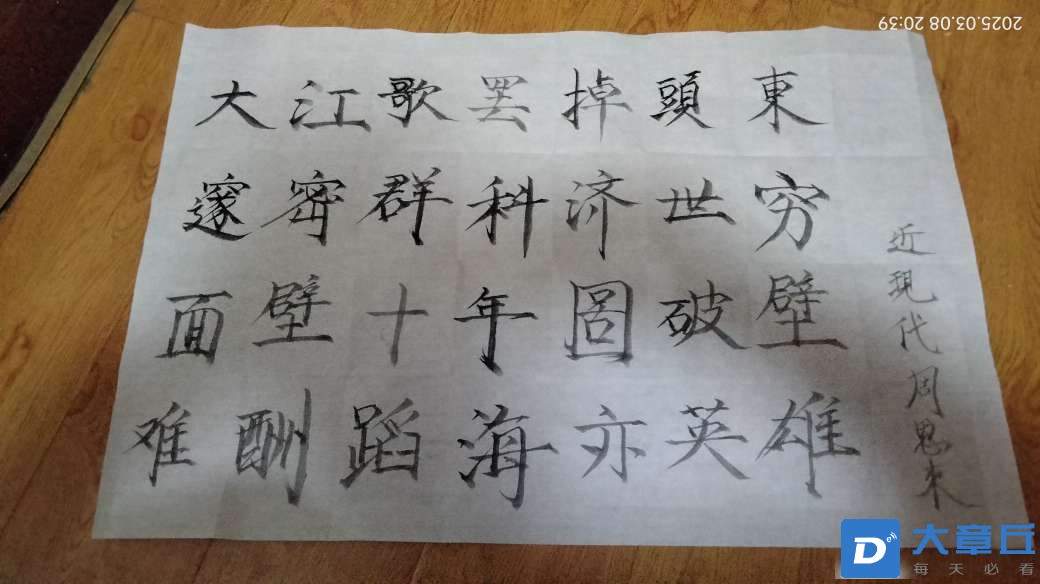 2025.03.08 20:39
大江歌罢掉頭東
邃密群科济世穷
面壁十年圖破壁
难酬蹈海亦英雄
近現代周恩来
大章丘
每天必看